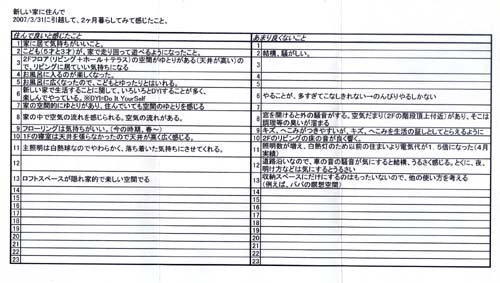 新しい家に住んで
2007/3/31に引越して、2ヶ月暮らしてみて感じたこと。
住んで良いと感じたこと
1 家に居て気持ちがいいこと。
2 こども(5才と3才)が、家で走り回って遊べるようになったこと。
3 2Fフロア(リビング+ホール+テラス)の空間がゆとりがある(天井が高い)ので、リビングに居ていい気持ちになる
4 お風呂に入るのが楽しくなった。
5 お風呂に広くなったので、こどもとゆったりとはいれる。
6 新しい家で生活することに関して、いろいろとDIYすることが多く、楽しんでやっている。※DIY=Do It YourSelf
7 家の空間的にゆとりがあり、住んでいても空間のゆとりを感じる
8 家の中で空気の流れを感じられる。空気の流れがある。
9 フローリングは気持ちがいい。(今の時期、春~)
10 1Fの寝室は天井を張らなかったので天井が高く広く感じる。
11 主照明は白熱球なのでやわらかく、落ち着いた気持ちにさせてくれる。
12
13 ロフトスペースが隠れ家的で楽しい空間でる
14
15
16
17
18
19
20
21
22
23
あまり良くないこと
1
2 結構、騒がしい。
3
4
5
6 やることが、多すぎてこなしきれない→のんびりやるしかない
7
8 窓を開けると外の騒音がする。空気だまり(2Fの階段頂上付近)があり、そこは調理等の臭いが溜まる
9 キズ、へこみがつきやすいが、キズ、へこみを生活の証しとしてとらえるように
10 2Fのリビングの床の音が良く響く。
11 照明数が増え、白熱灯のため以前の住まいより電気代が1.5倍になった(4月実績)
12 道路沿いなので、車の音の騒音が気にすると結構、うるさく感じる。とくに、夜、明け方などは気にするとうるさい
13 収納スペースにだけにするのはもったいないので、他の使い方を考える(例えば、パパの瞑想空間)
14
15
16
17
18
19
20
21
22
23